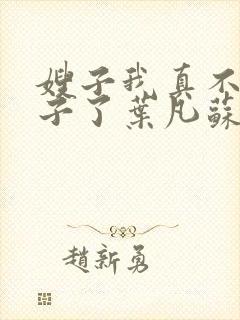 嫂子我真不
子了葉凡蘇
趙新勇